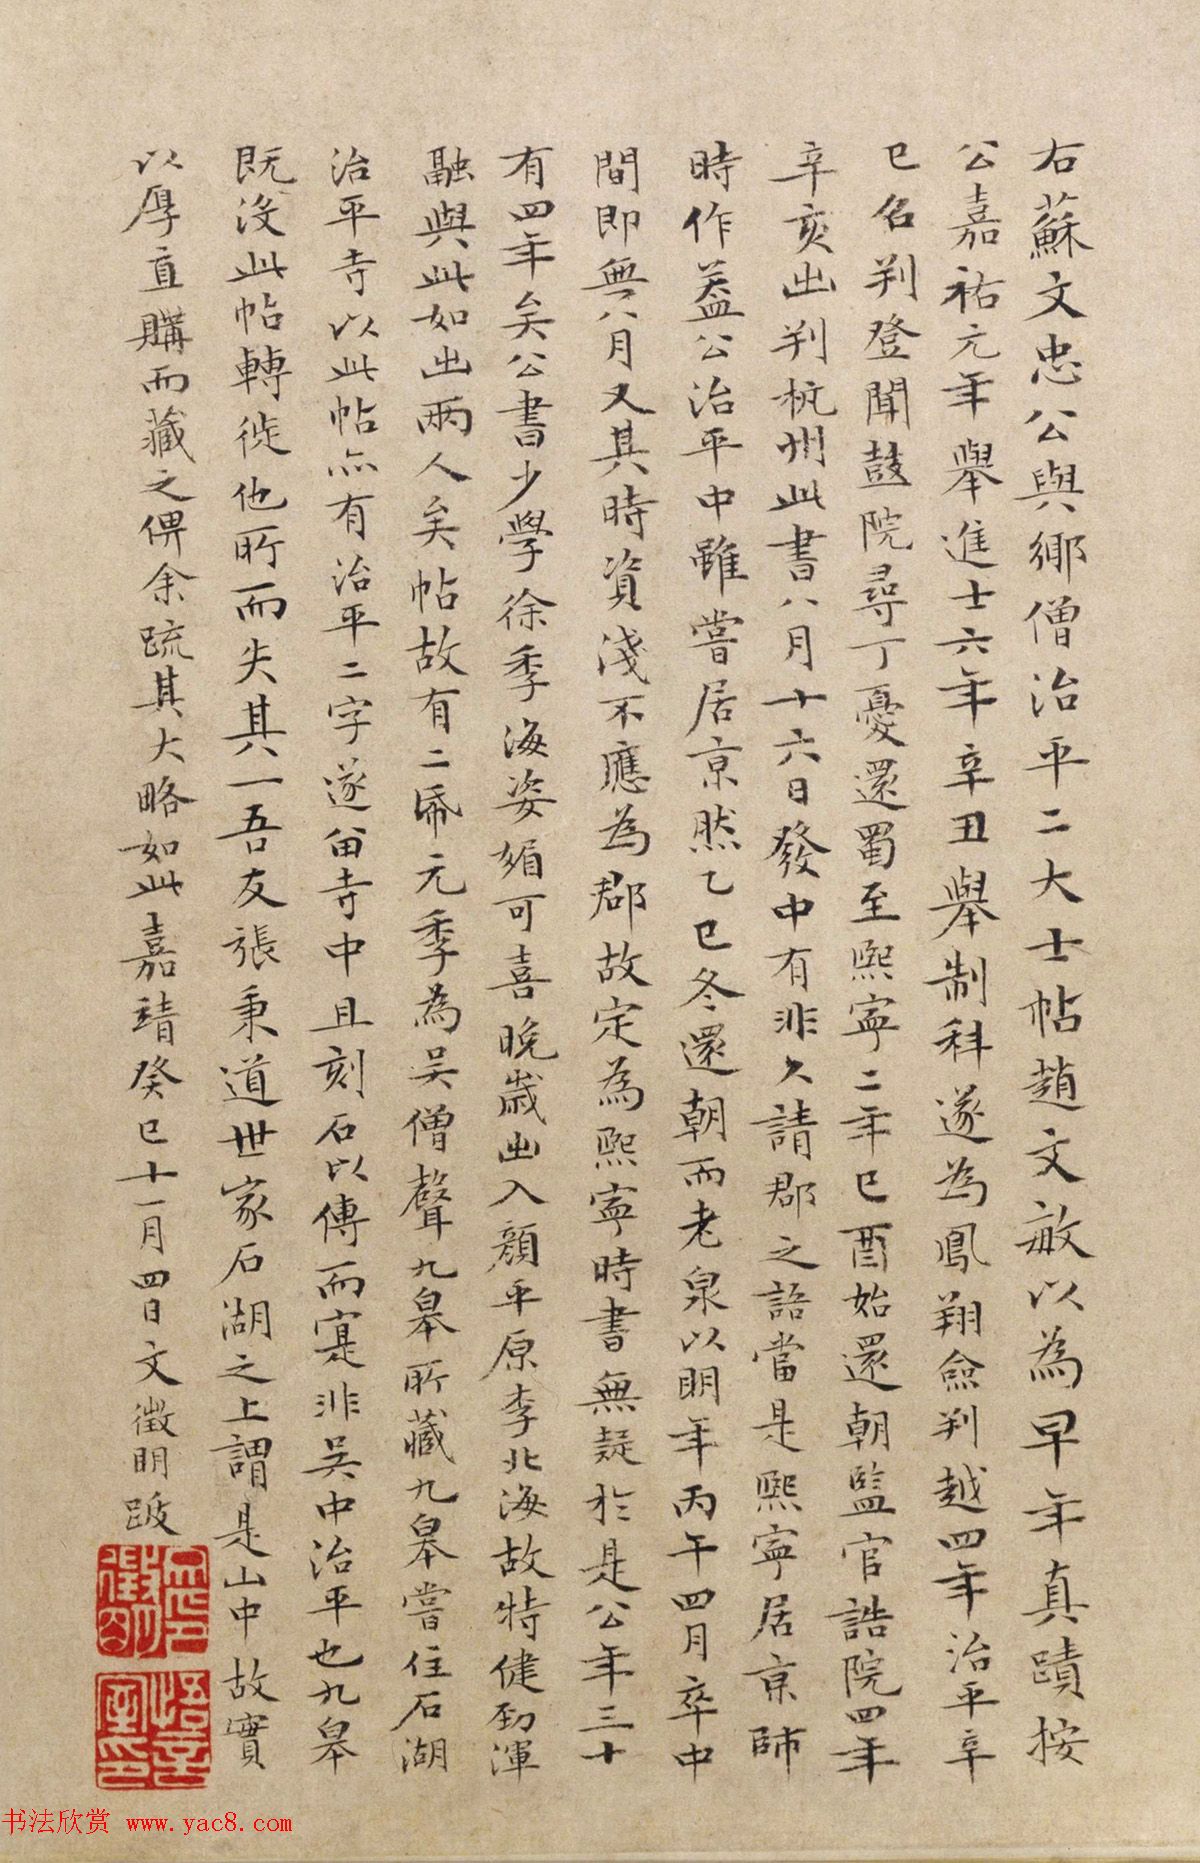 右蘇文忠公與鄉僧治平二大士帖趙文敏以為早年真蹟按
公嘉祐元年舉進士六年辛丑舉制科遂為鳳翔僉判越四年治平辛
巳名判登聞鼓院尋丁憂還蜀至熙寧二年己酉始還朝監官誥院四年
辛亥出判杭州此書八月十六日發中有非久請郡之語當是熙寧居京師
時作葢公治平中雖嘗居京然乙巳冬還朝而老泉以明年丙午四月卒中
間即無八月又其時資淺不應為郡故定為熙寧時書無疑於是公年三十
有四年矣公書少學徐季海姿媚可喜晚歲出入顏平原李北海故特健勁渾
融與此如出兩人矣帖故有二帋元季為吳僧聲九皋所藏九皋嘗住石湖
治平寺以此帖亦有治平二字遂留寺中且刻石以傳而寔非吳中治平也九皋
既沒此帖轉徙他所而失其一吾友張秉道世家石湖之上謂是山中故實
以厚直購而藏之俾余疏其大略如此嘉靖癸巳十一月四日文徵明跋
悟言室印
书法欣赏 www.yac8.com